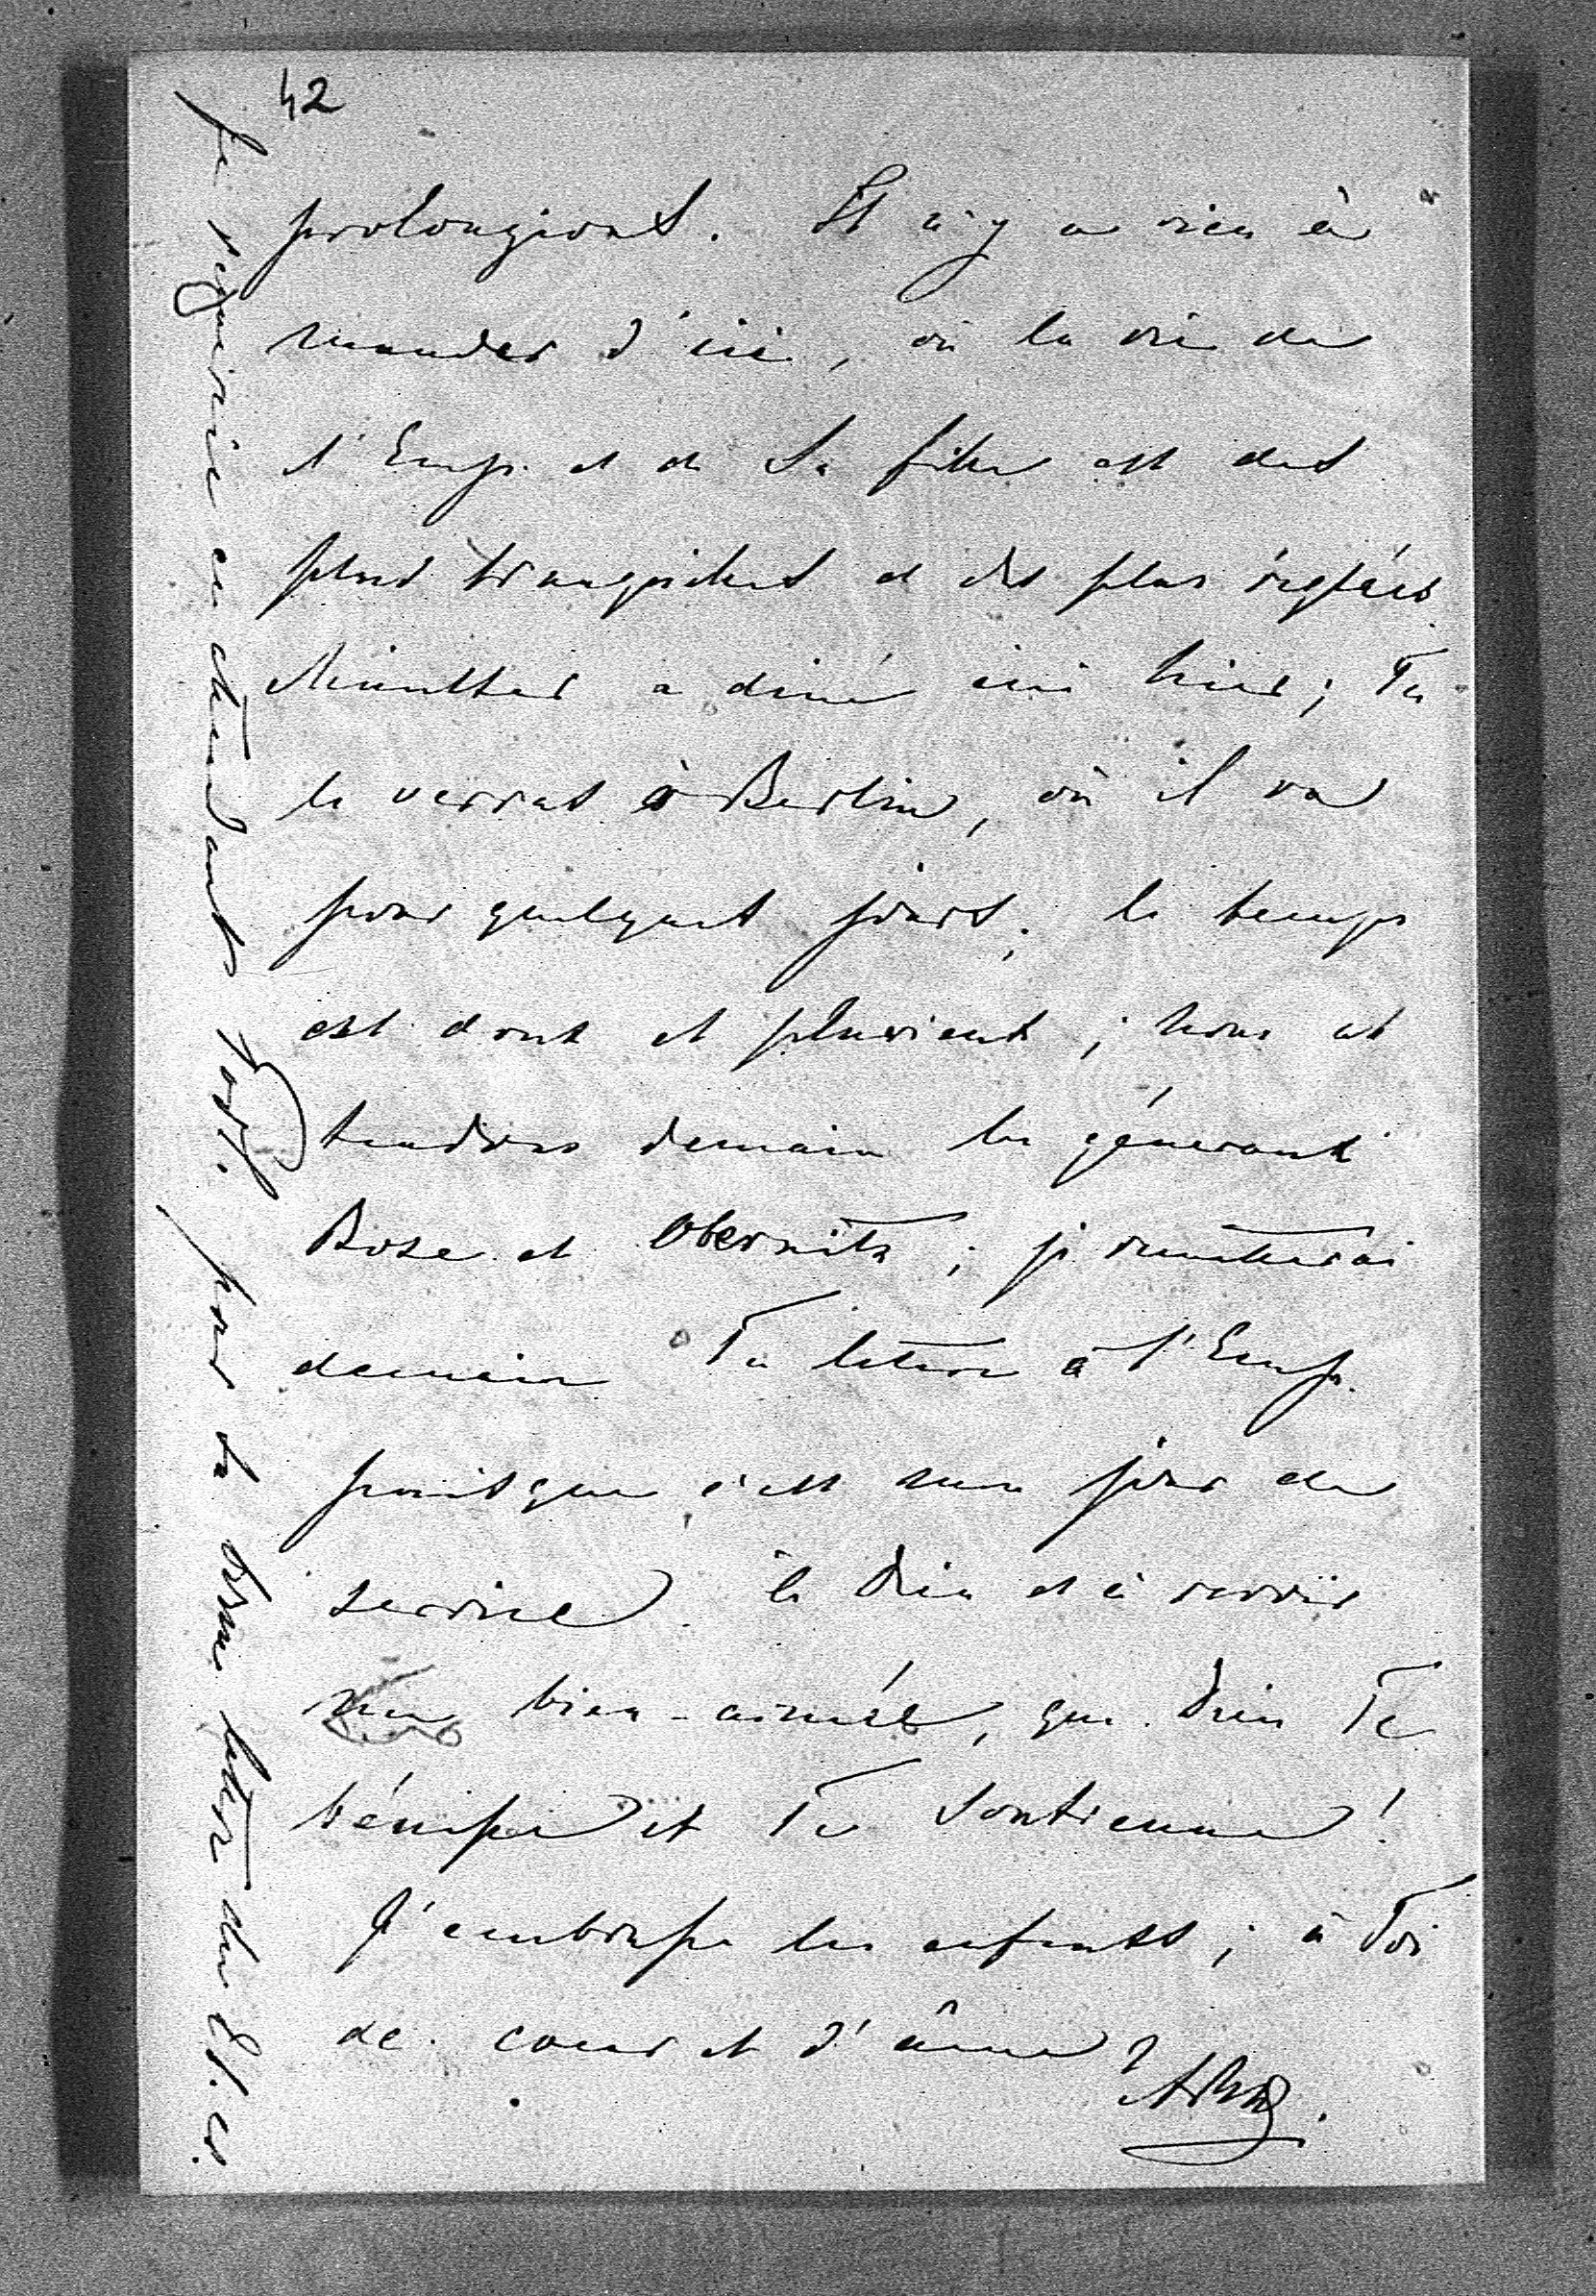 42
prolongeront. Il n'y a rien à
mander d'ici, où la vie de
l'Emp. et de Sa fille est des
plus tranquilles et des plus réglées.
Münster a diné ici hier; Tu
le verras à Berlin, où il va
pour quelques jours; le temps
est doux et pluvieux; nous at
tendons demain les généraux
Bose et Obernitz; je remetterai
demain Ta lettre à l'Emp.
puisque c'est mon jour de
service. à Dieu et à revoir
ma bien-aimée, que Dieu Te
bénisse et Te soutienne!
J'embrasse les enfants; à Toi
de cœur et d'âme
Je Te remercie en attendant
pour la bonne lettre du 21. cr.